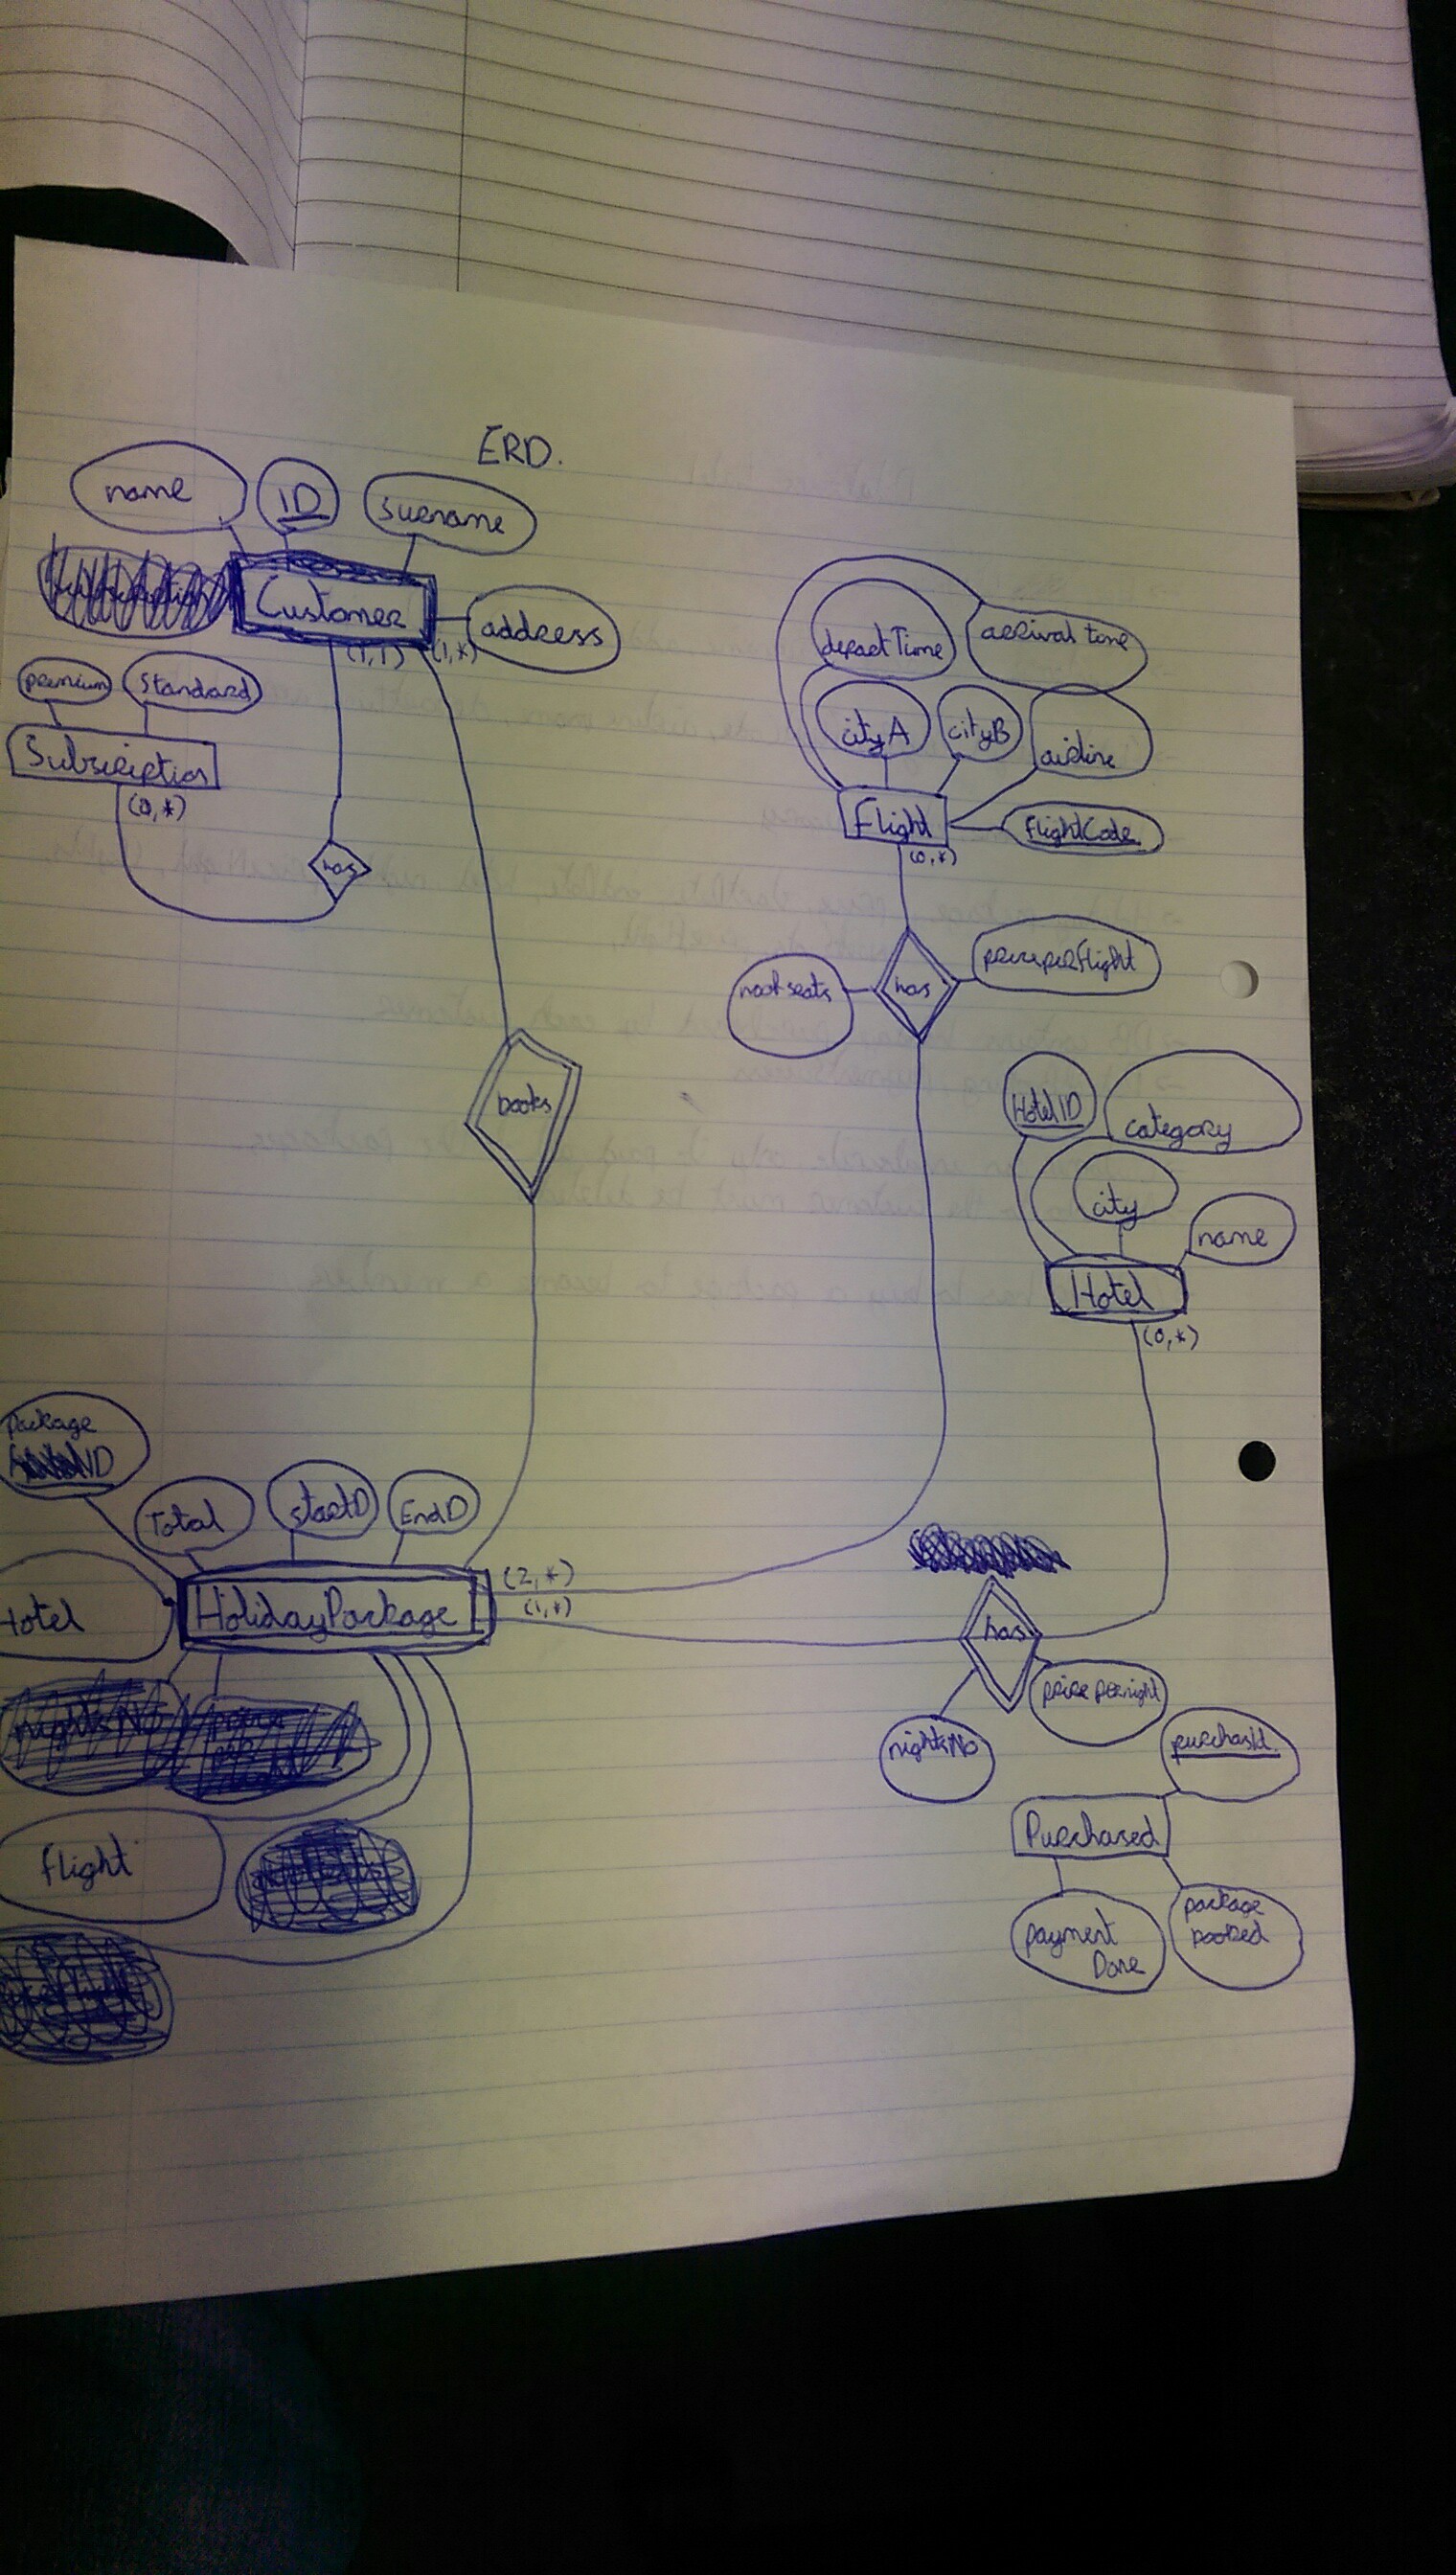 ERD.
name
ID
surname
Customer
address
(1,1)
(1,*)
premium
Standard
Subscription
(0,*)
has
books
depart Time
arrival time
cityA
cityB
airline
Flight
FlightCode
(0,*)
noofseats
has
priceperflight
HotelID
category
city
name
Hotel
(0,*)
package
ID
Total
startD
EndD
Hotel
HolidayPackage
(2,*)
(1,*)
has
nightsNo
price pernight
flight
purchasId
Purchased
payment
Done
package
booked